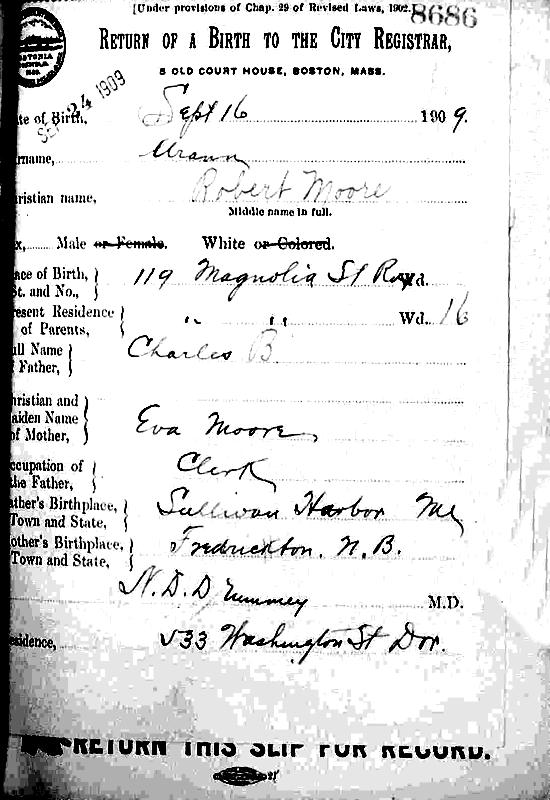 [Under provisions of Chap. 29 of Revised Laws, 1902.
8686
RETURN OF A BIRTH TO THE CITY REGISTRAR,
5 OLD COURT HOUSE, BOSTON, MASS.
SEP 24 1909
te of Birth, Sept 16 1909.
rname, Urann
ristian name, Robert Moore
Middle name in full.
x, Male or Female. White or Colored.
ace of Birth, St. and No., 119 Magnolia St Rox Wd.
esent Residence of Parents, " " Wd. 16
ull Name Father, Charles B
ristian and aiden Name of Mother, Eva Moore
ccupation of the Father, Clerk
ather's Birthplace, Town and State, Sullivan Harbor Me
other's Birthplace, Town and State, Fredrickton. N.B.
N. D. Drummey M.D.
esidence, 533 Washington St Dor.
RETURN THIS SLIP FOR RECORD.